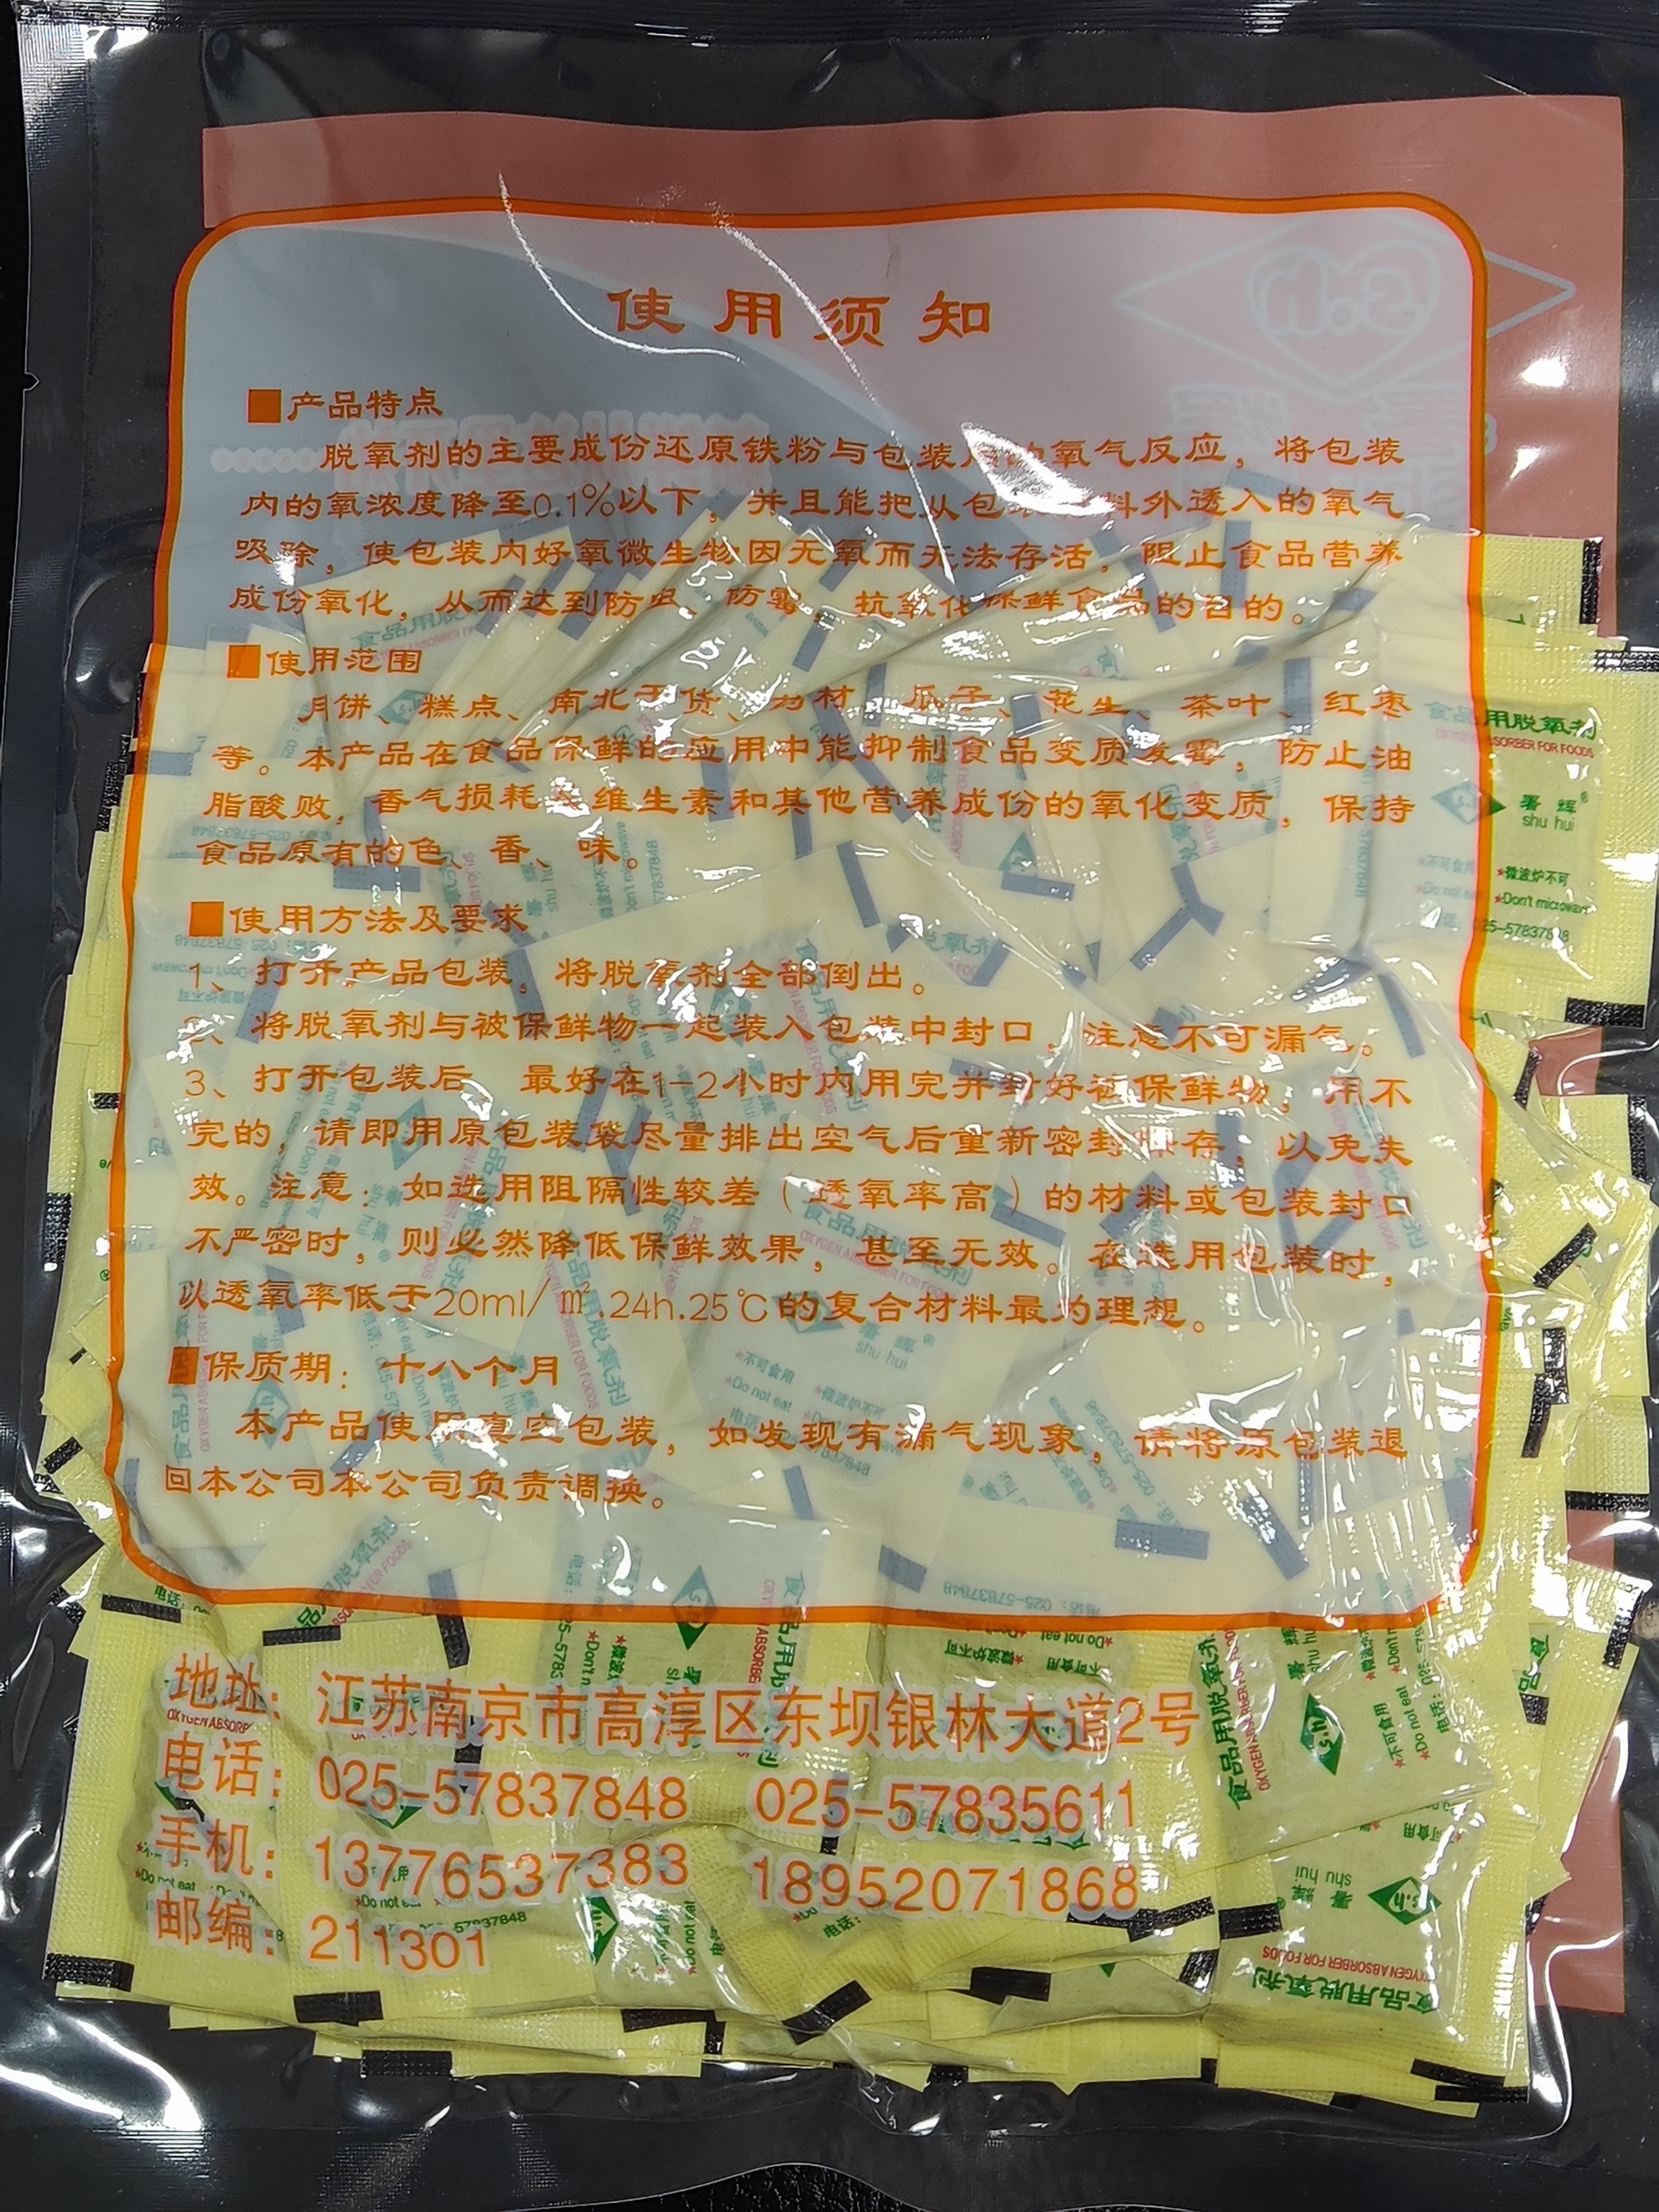 使用须知
■产品特点
脱氧剂的主要成份还原铁粉与包装 氧气反应，将包装
内的氧浓度降至0.1%以下，并且能把从包 料外透入的氧气
吸除，使包装内好氧微生物因无氧而无法存活，阻止食品营养
成份氧化，从而达到防虫、防霉、抗氧化保鲜食品的目的。
■使用范围
月饼、糕点、南北干货、 材、瓜子、花生、茶叶、红枣
等。本产品在食品保鲜的应用中能抑制食品变质发霉，防止油
脂酸败，香气损耗 维生素和其他营养成份的氧化变质，保持
食品原有的色、香、味。
■使用方法及要求
1、打开产品包装，将脱氧剂全部倒出。
2、将脱氧剂与被保鲜物一起装入包装中封口，注意不可漏气。
3、打开包装后，最好在1-2小时内用完并封好被保鲜物，用不
完的，请即用原包装袋尽量排出空气后重新密封 存，以免失
效。注意：如选用阻隔性较差（透氧率高）的材料或包装封口
不严密时，则必然降低保鲜效果，甚至无效。在选用包装时，
以透氧率低于20ml/㎡.24h.25℃的复合材料最为理想。
■保质期：十八个月
本产品使用真空包装，如发现有漏气现象，请将原包装退
回本公司本公司负责调换。
地址：江苏南京市高淳区东坝银林大道2号
电话：025-57837848 025-57835611
手机：13776537383 18952071868
邮编：211301
食品用脱氧剂
署辉®
shu hui
★微波炉不可
★Don't microwave
食品用脱氧剂
OXYGEN ABSORBER FOR FOODS
署辉®
shu hui
★不可食用
★Do not eat
食品用脱氧剂
OXYGEN ABSORBER FOR FOODS
S.h
署辉
shu hui
★不可食用
★Do not eat
食品用脱氧剂
OXYGEN ABSORBER FOR FOODS
S.h
署辉
shu hui